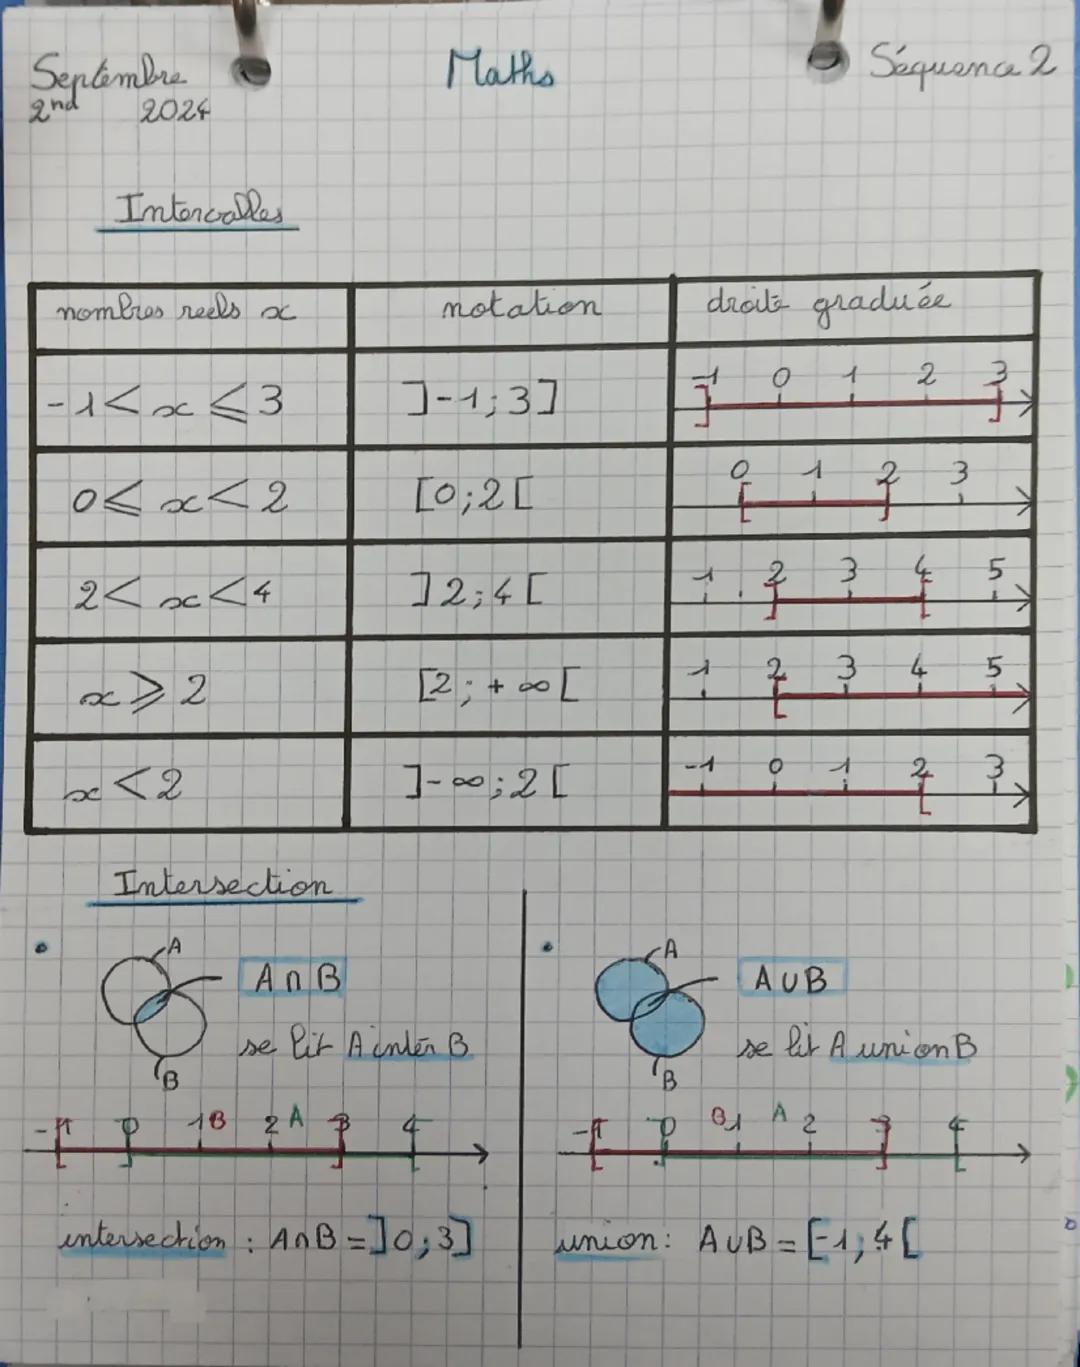 Septembre Maths Séquence 2
2nd 2024
Intervalles
nombres reels x notation droite graduée
-1 < x ⩽ 3 ]-1; 3] -1 0 1 2 3
0 ⩽ x < 2 [0; 2[ 0 1 2 3
2 < x < 4 ]2; 4[ 1 2 3 4 5
x ⩾ 2 [2; +∞[ 1 2 3 4 5
x < 2 ]-∞; 2[ -1 0 1 2 3
Intersection
A
A∩B
se lit A inter B
B
-1 0 1 B 2 A 3 4
intersection : A∩B = ]0; 3]
A
A∪B
se lit A union B
B
-1 0 B 1 A 2 3 4
union : A∪B = [-1; 4[